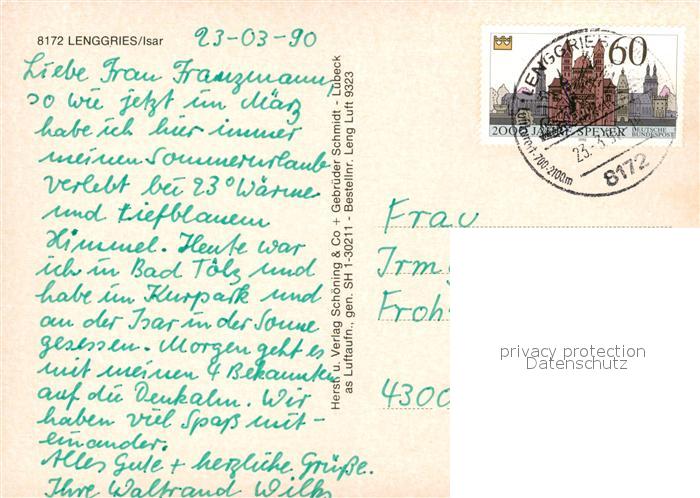 8172 LENGGRIES/Isar
23-03-90
Liebe Frau Franzmann
so wie jetzt im März
habe ich hier immer
meinen Sommerurlaub
verlebt bei 23° Wärme
und tiefblauem
Himmel. Heute war
ich in Bad Tölz und
habe im Kurpark und
an der Isar in der Sonne
gesessen. Morgen geht es
mit meinen 4 Bekannten
auf die Denkalm. Wir
haben viel Spaß mit-
einander.
Alles Gute + herzliche Grüße.
Ihre Waltraud Wilks
Herst. u. Verlag Schöning & Co + Gebrüder Schmidt - Lübeck
as Luftaufn., gen. SH 1-30211 - Bestellnr. Leng Luft 9323
60
2000 JAHRE SPEYER
DEUTSCHE
BUNDESPOST
LENGGRIES
23.3.
700-2100m
8172
Frau
Irm
Froh
4300
privacy protection
Datenschutz